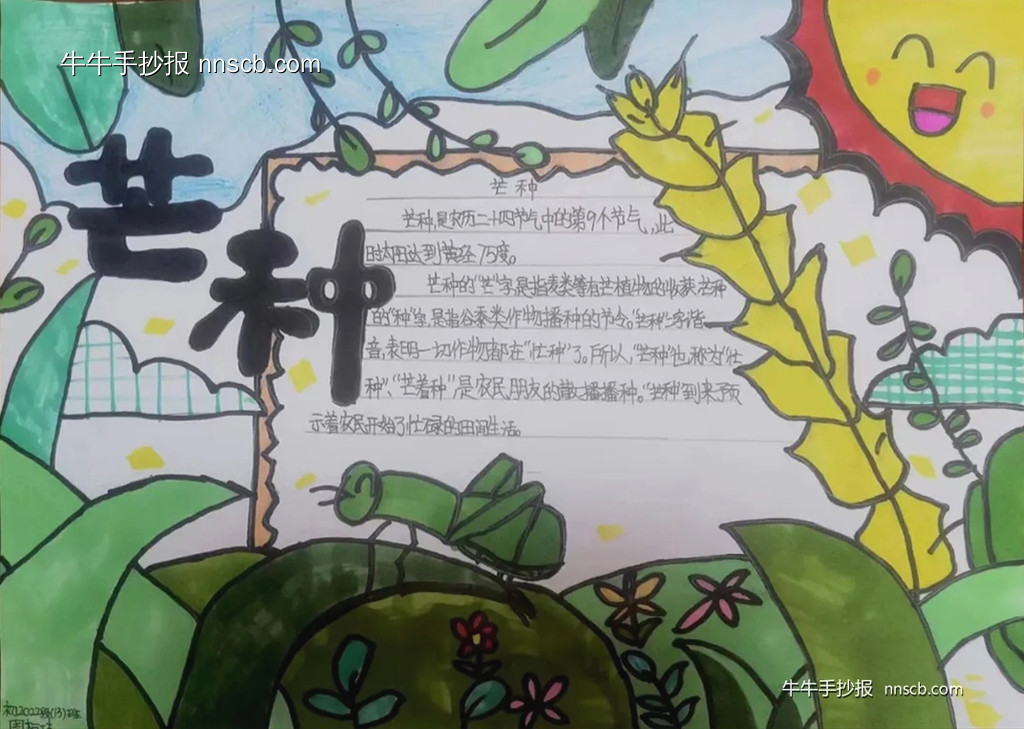 牛牛手抄报 nnscb.com
芒种
芒种
芒种,是农历二十四节气中的第9个节气,此
时太阳达到黄经75度。
芒种的"芒"字,是指麦类等有芒植物的收获,芒种
的"种"字,是指谷黍类作物播种的节令。"芒种"二字谐
音,表明一切作物都在"忙种"了。所以,"芒种"也称为"忙
种"、"芒着种",是农民朋友的散播播种。"芒种"到来预
示着农民开始了忙碌的田间生活。
初2022级(13)班
牛牛手抄报 nnscb.com